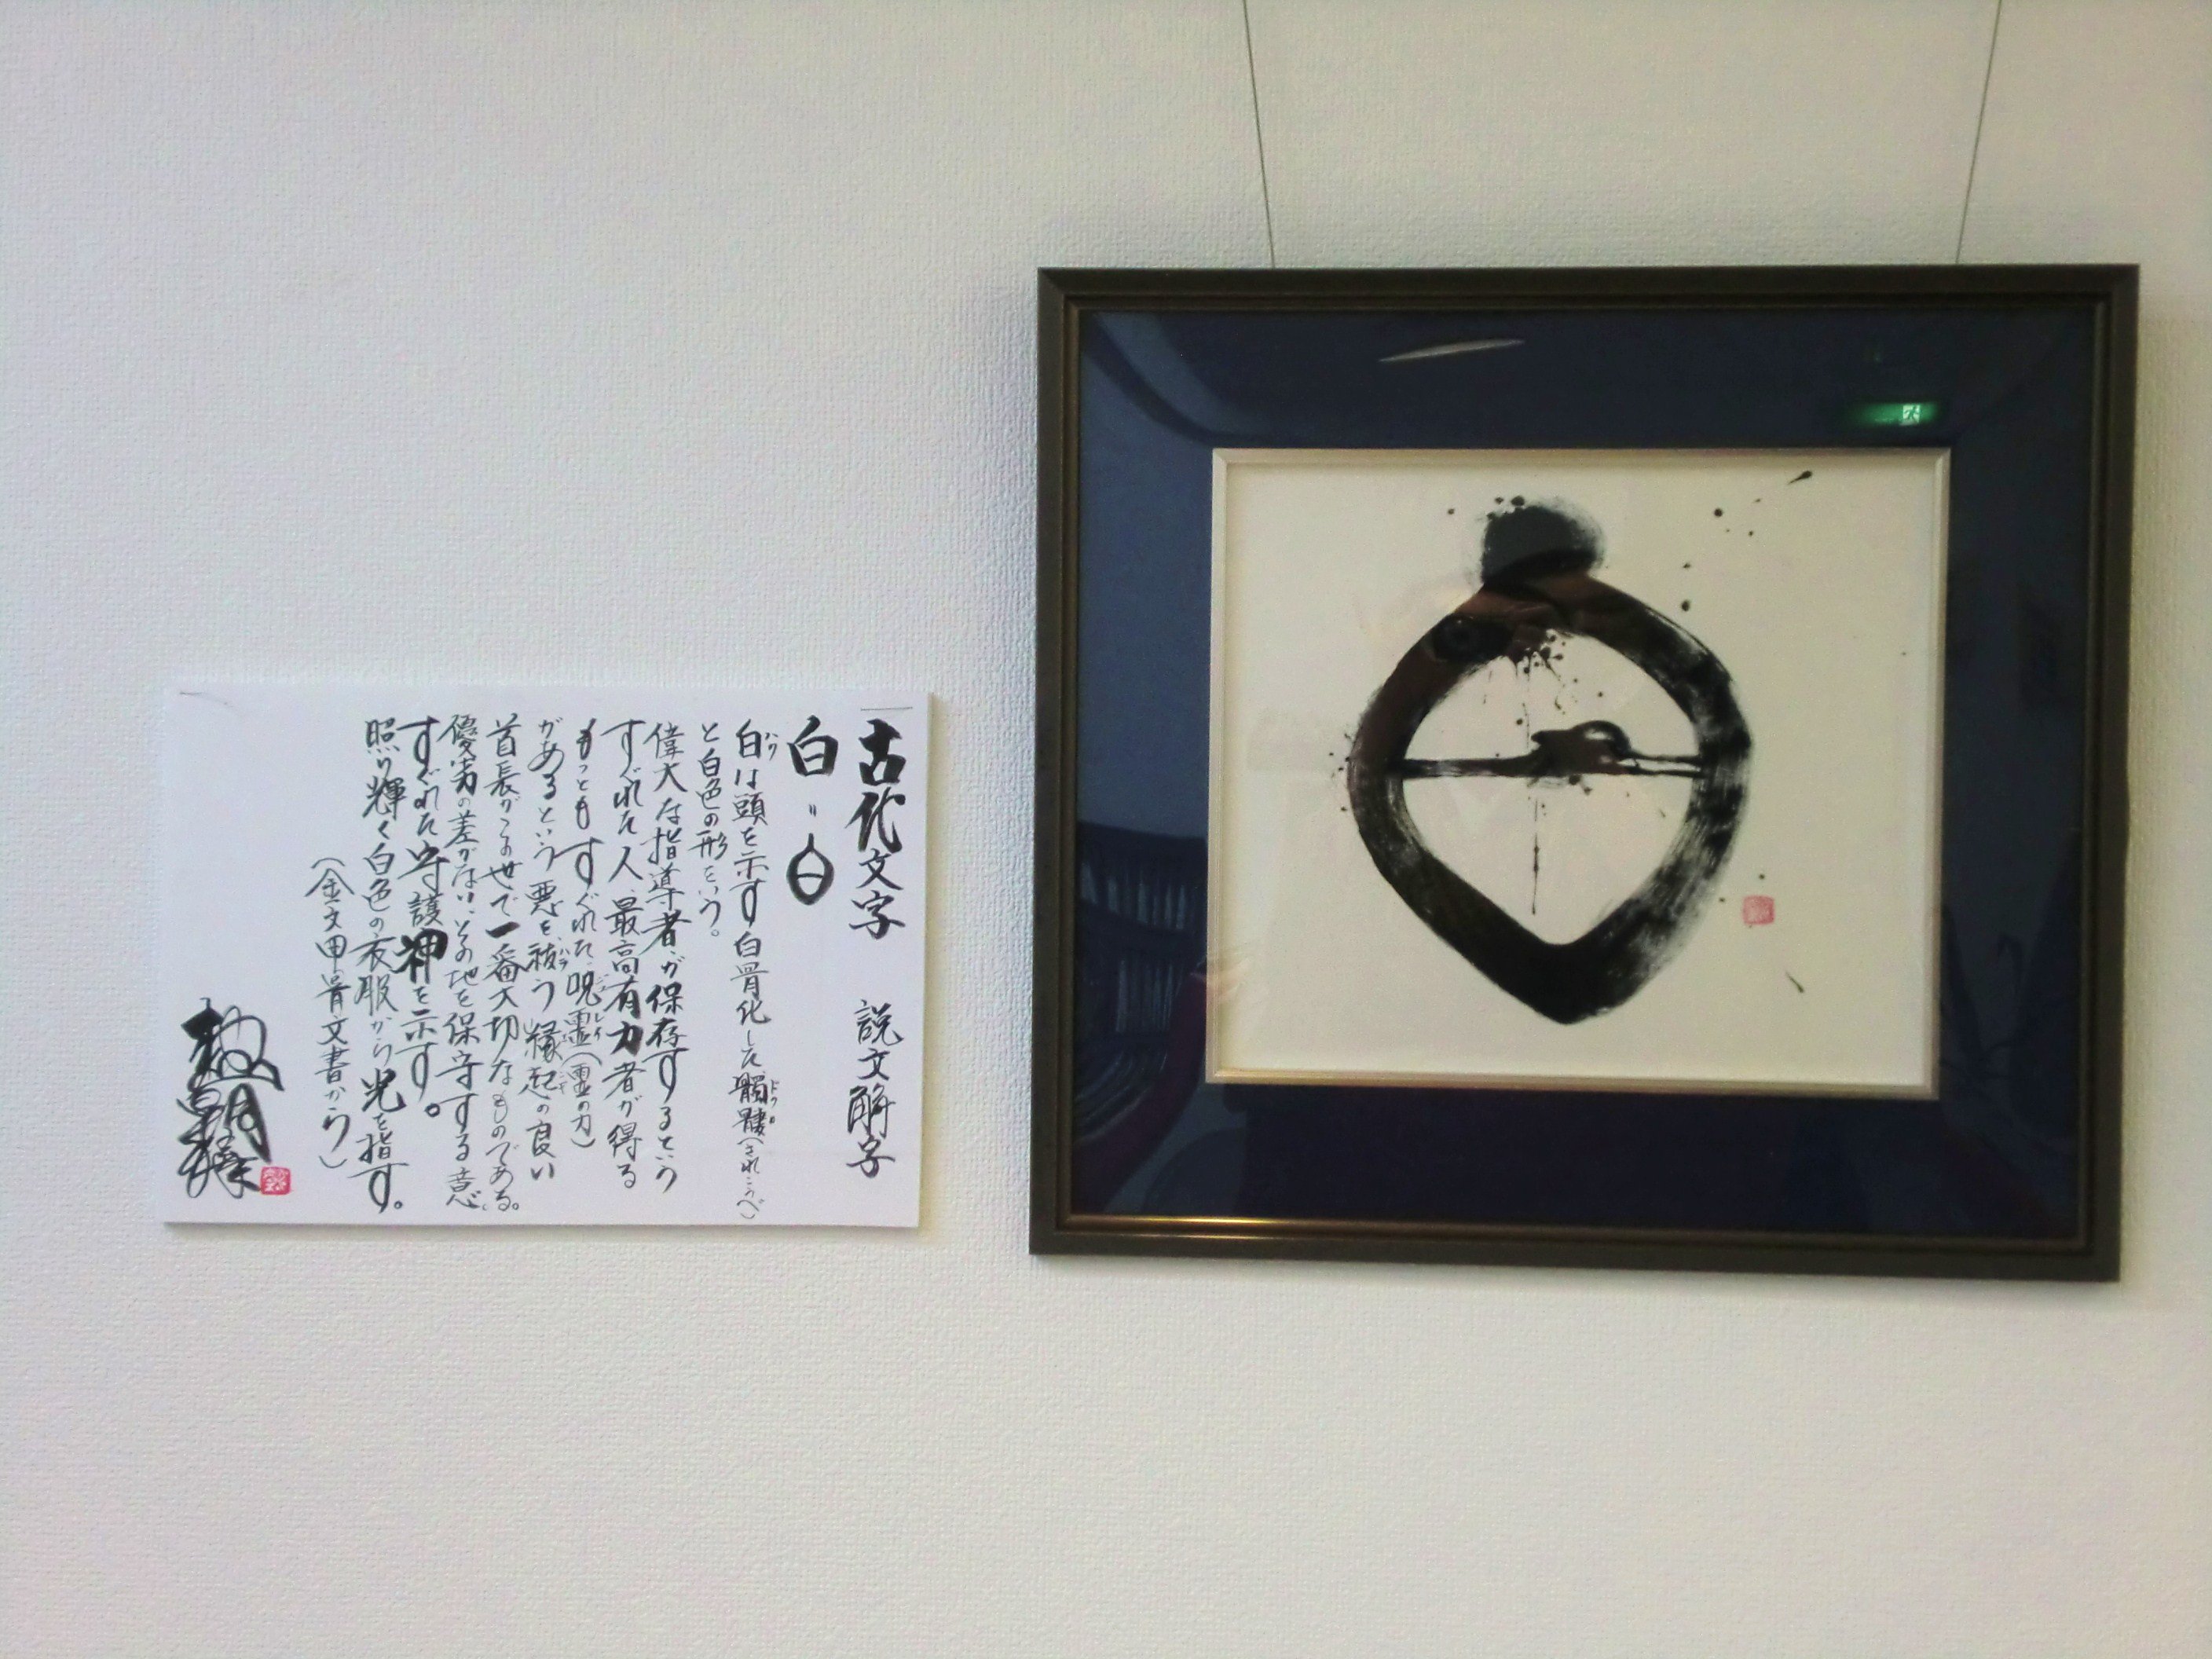 古代文字 説文解字
白＝
白は頭を示す白骨化した髑髏（されこうべ）
と白色の形をいう。
偉大な指導者が保存するという
すぐれた人、最高有力者が得る
もっともすぐれた呪霊（霊の力）
があるという悪を祓う縁起の良い
首長がこの世で一番大切なものである。
優劣の差がない、その地を保守する意、
すぐれた守護神を示す。
照り輝く白色の衣服から光を指す。
（金文甲骨文書から）